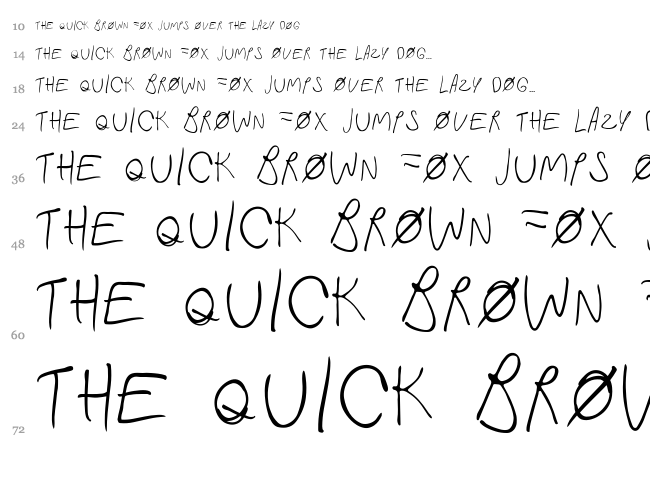 10 THE QUICK BRØWN FØX JUMPS ØVER THE LAZY DØG
14 THE QUICK BRØWN FØX JUMPS ØVER THE LAZY DØG...
18 THE QUICK BRØWN FØX JUMPS ØVER THE LAZY DØG...
24 THE QUICK BRØWN FØX JUMPS ØVER THE LAZY
36 THE QUICK BRØWN FØX JUMPS
48 THE QUICK BRØWN FØX
60 THE QUICK BRØWN
72 THE QUICK BRØ